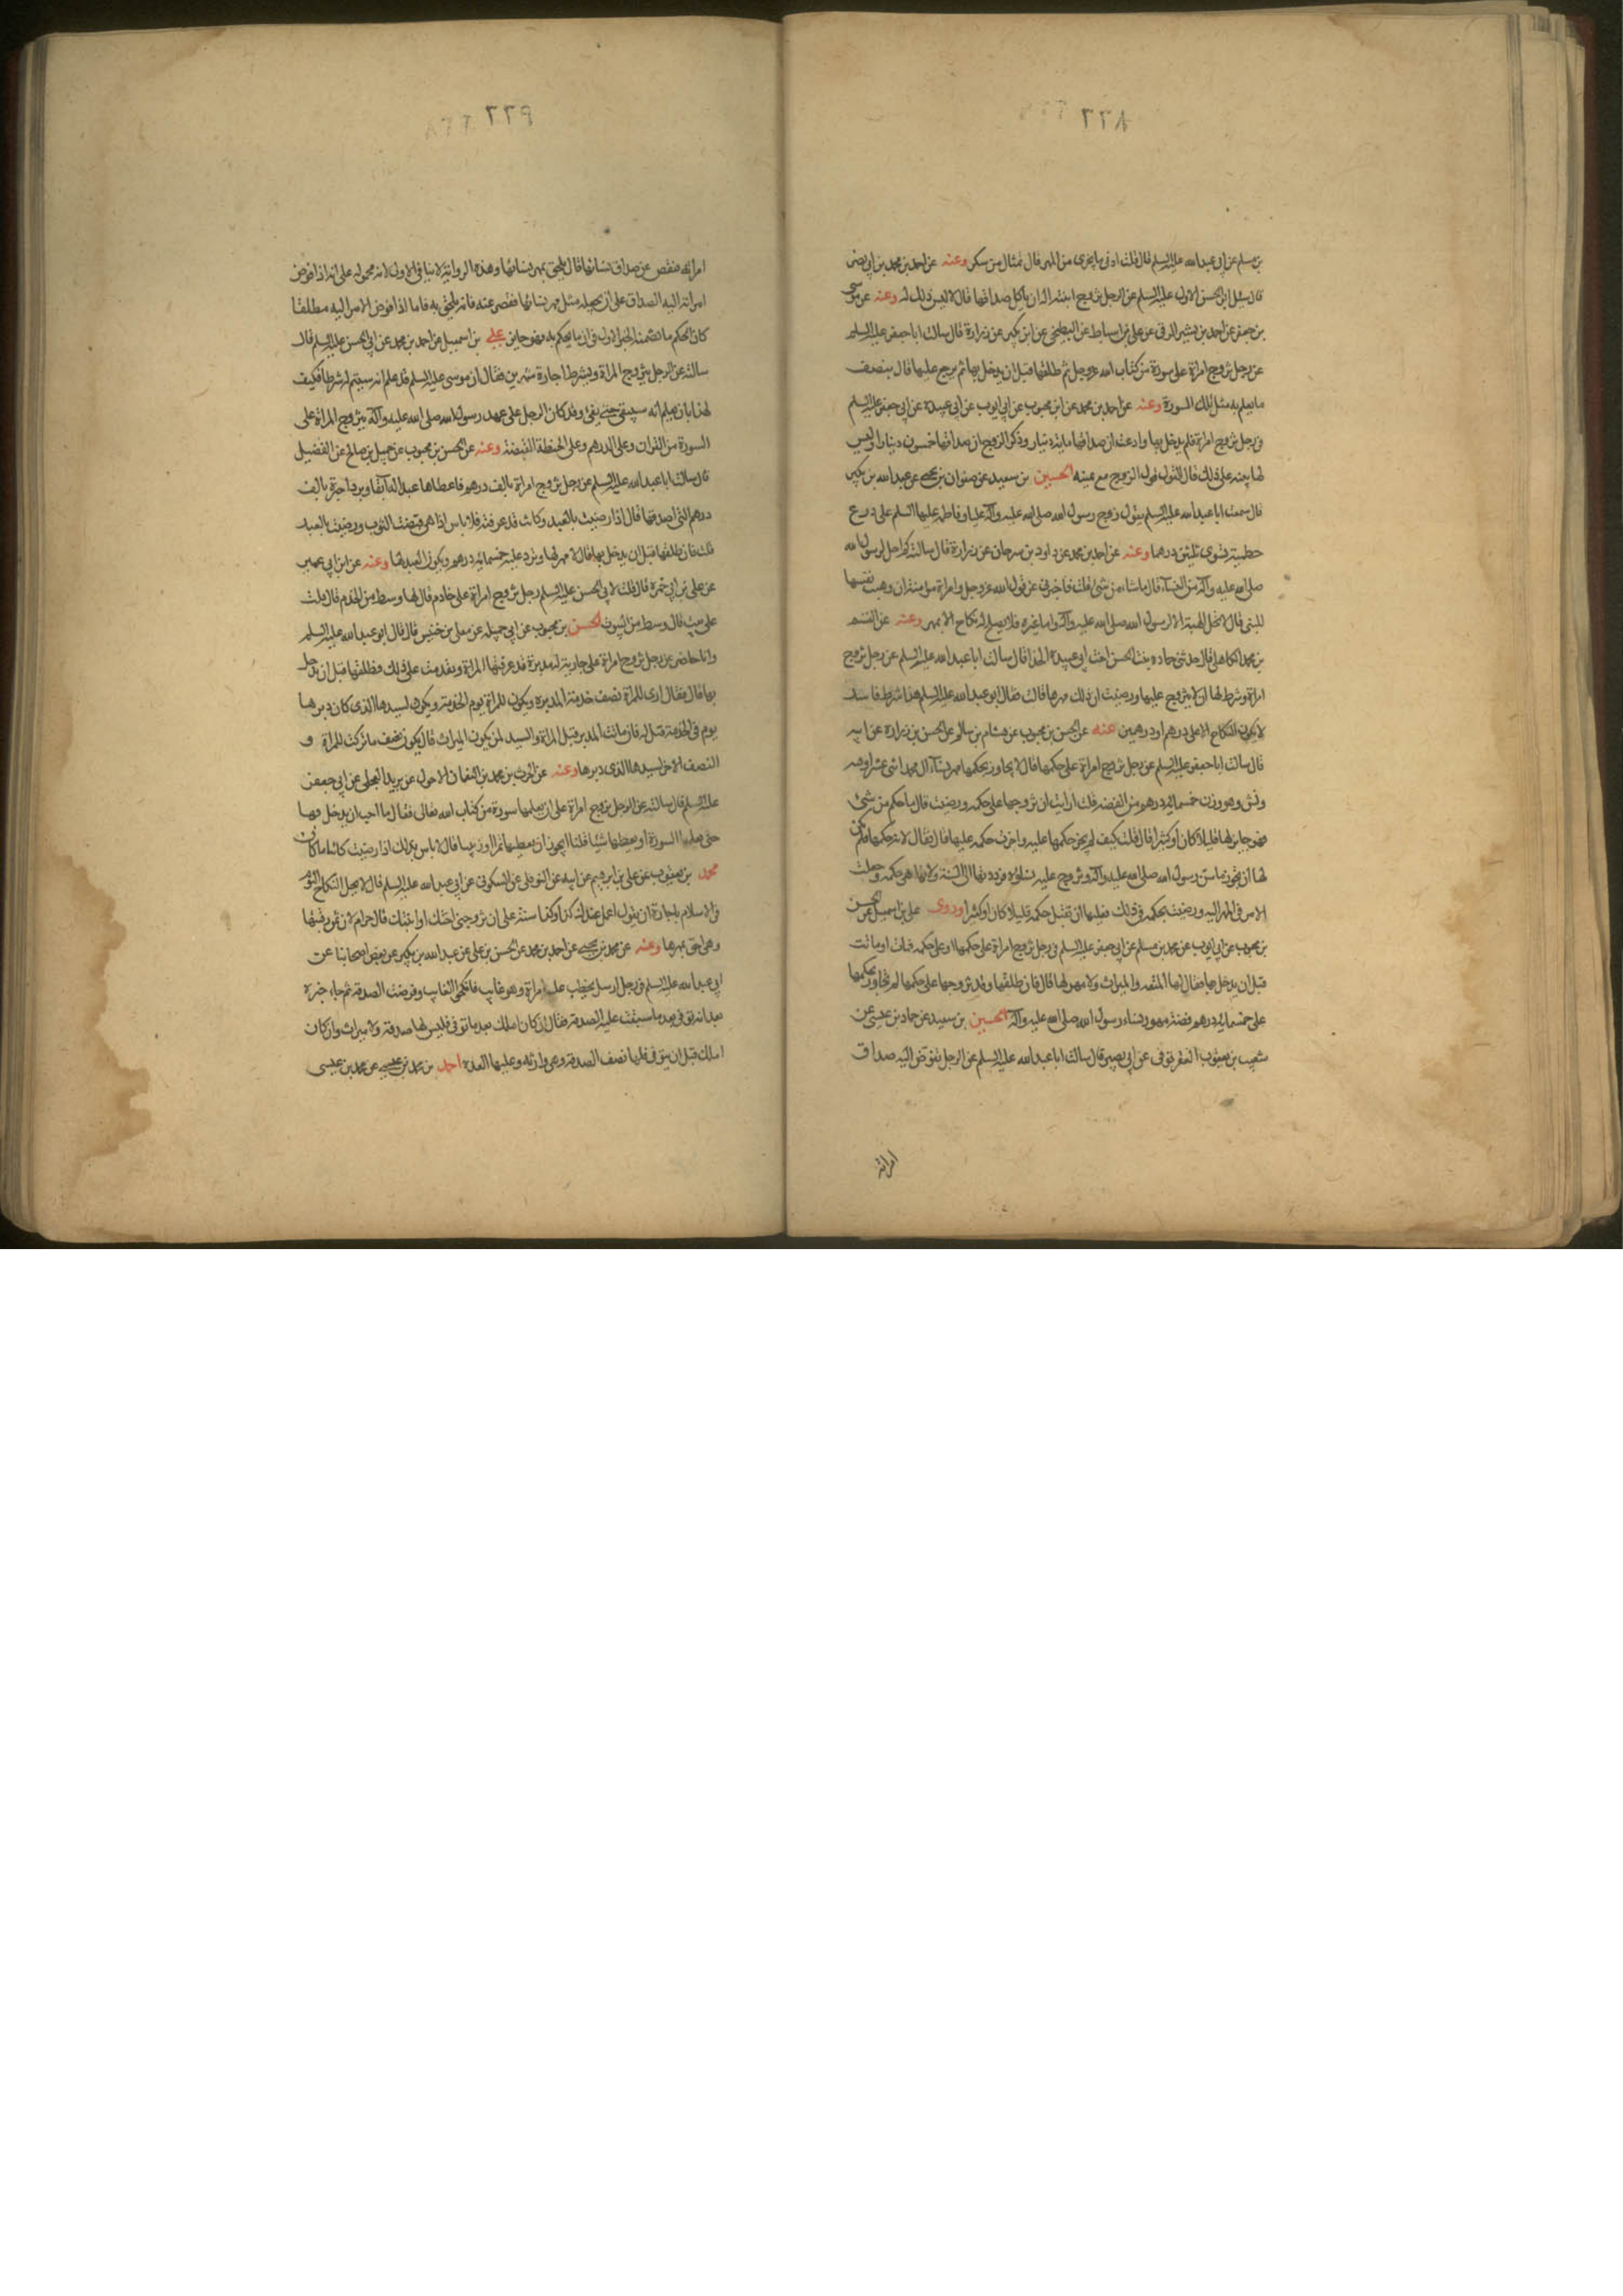 ٨٦٦
بن مسلم عن ابي عبد الله عليه السلم قال قلت ادنى ما يجزى من المهر قال تمثال من سكر وعنه عن احمد بن محمد بن ابي نصر
قال سئل ابو الحسن الاول عليه السلم عن الرجل يزوج ابنته اله ان ياكل صداقها قال لا ليس ذلك له وعنه عن موسى
بن جعفر عن احمد بن بشير الرقى عن على بن اسباط عن البطيخى عن ابن بكير عن زرارة قال سالت ابا جعفر عليه السلم
عن رجل تزوج امراة على سورة من كتاب الله عز وجل ثم طلقها قبل ان يدخل بها ثم يرجع عليها قال بنصف
ما يعلم به مثل تلك السورة وعنه عن احمد بن محمد عن ابن محبوب عن ابي ايوب عن ابي عبيدة عن ابي جعفر عليه السلم
فى رجل تزوج امراة فلم يدخل بها وادعت ان صداقها مائة دينار وذكر الزوج ان صداقها خمسون دينارا وليس
لها بينة على ذلك قال القول قول الزوج مع يمينه الحسين بن سعيد عن صفوان بن يحيى عن عبد الله بن بكير
قال سمعت ابا عبد الله عليه السلم يقول زوج رسول الله صلى الله عليه وآله عليا وفاطمة عليها السلم على درع
حطمية تسوى ثلثين درهما وعنه عن احمد بن محمد عن داود بن سرحان عن زرارة قال سالته كم احل لرسول الله
صلى الله عليه وآله من النساء قال ما شاء من شئ قلت فاخبرنى عن قول الله عز وجل وامراة مؤمنة ان وهبت نفسها
للنبى قال لا تحل الهبة الا لرسول الله صلى الله عليه وآله واما غيره فلا يصلح له نكاح الا بمهر وعنه عن القسم
بن محمد الكاهلى قال حدثتنى حماده بنت الحسن اخت ابي عبيدة الحذا قال سالت ابا عبد الله عليه السلم عن رجل تزوج
امراة وشرط لها ان لا يتزوج عليها ورضيت ان ذلك مهرها قالت فقال ابو عبد الله عليه السلم هذا شرط فاسد
لا يكون النكاح الا على درهم او درهمين عنه عن الحسن بن محبوب عن هشام بن سالم عن الحسن بن زرارة عن ابيه
قال سالت ابا جعفر عليه السلم عن رجل تزوج امراة على حكمها قال لا يجاوز بحكمها مهر نساء آل محمد اثنى عشر اوقيه
ونش وهو وزن خمسمائة درهم من الفضه قلت ارايت ان تزوجها على حكمه ورضيت قال ما حكم من شئ
فهو جايز لها قليلا كان او كثيرا قال قلت كيف لم يجز حكمها عليه واجزت حكمه عليها قال فقال لانه حكمها فلم يكن
لها ان تجوز ما سن رسول الله صلى الله عليه وآله وتزوج عليه نساءه فرددتها الى السنة ولانها هى حكمه وجعلت
الامر فى المهر اليه ورضيت بحكمه فى ذلك فعليها ان تقبل حكمه قليلا كان او كثيرا وروى على بن اسمعيل عن الحسن
بن محبوب عن ابي ايوب عن محمد بن مسلم عن ابي جعفر عليه السلم فى رجل تزوج امراة على حكمها او على حكمه فمات او ماتت
قبل ان يدخل بها فقال لها المتعه والميراث ولا مهر لها قال فان طلقها وقد تزوجها على حكمها لم تجاوز بحكمها
على خمسمائة درهم فضة مهور نساء رسول الله صلى الله عليه وآله الحسين بن سعيد عن حماد بن عيسى عن
شعيب بن يعقوب العقرقوفى عن ابي بصير قال سالت ابا عبد الله عليه السلم عن الرجل يفوض اليه صداق
امراته
٩٦٦
امراته فنقص عن صداق نسائها قال يلحق بمهر نسائها وهذه الرواية لا ينافى الاول لانه محمولة على انه اذا فوض
امراته اليه الصداق على ان يجعله مثل مهر نسائها فقصر عنه فانه يلحق به فاما اذا فوض الامر اليه مطلقا
كان الحكم ما تضمنه الخبر الاول فى ان ما يحكم به فهو جايز على بن اسمعيل عن احمد بن محمد عن ابي الحسن عليه السلم قال
سالته عن الرجل يتزوج المراة ويشترط اجارة شهرين فقال ان موسى عليه السلم قد علم انه سيتم له شرطه فكيف
لهذا بان يعلم انه سيبقى حتى يفى وقد كان الرجل على عهد رسول الله صلى الله عليه وآله يتزوج المراة على
السورة من القران وعلى الدرهم وعلى الحنطة القبضة وعنه عن الحسن بن محبوب عن جميل بن صالح عن الفضيل
قال سالت ابا عبد الله عليه السلم عن رجل تزوج امراة بالف درهم فاعطاها عبدا له آبقا وبردا حبرة بالف
درهم التى اصدقها قال اذا رضيت بالعبد وكانت قد عرفته فلا باس اذا هى قبضت الثوب ورضيت بالعبد
قلت فان طلقها قبل ان يدخل بها قال لا مهر لها وترد عليه خمسمائة درهم ويكون العبد لها وعنه عن ابن ابي عمير
عن على بن ابي حمزه قال قلت لابي الحسن عليه السلم رجل تزوج امراة على خادم قال لها وسط من الخدم قال قلت
على بيت قال وسط من البيوت الحسن بن محبوب عن ابي جميله عن معلى بن خنيس قال قال ابو عبد الله عليه السلم
وانا حاضر عن رجل تزوج امراة على جارية له مدبرة قد عرفتها المراة وتقدمت على ذلك وطلقها قبل ان يدخل
بها قال فقال ارى للمراة نصف خدمة المدبره ويكون للمراة يوم الخدمة ويكون لسيدها الذى كان دبرها
يوم فى الخدمة قيل له فان ماتت المدبرة قبل المراة والسيد لمن يكون الميراث قال يكون نصف ما تركت للمراة و
النصف الاخر لسيدها الذى دبرها وعنه عن الحرث بن محمد بن النعمان الاحول عن بريد العجلى عن ابي جعفر
عليه السلم قال سالته عن الرجل يزوج امراة على ان يعلمها سورة من كتاب الله تعالى فقال ما احب ان يدخل بها
حتى يعلمها السورة او يعطيها شيئا قلنا ايجوز ان يعطيها تمرا او زبيبا قال لا باس بذلك اذا رضيت كائنا ما كان
محمد بن يعقوب عن على بن ابرهيم عن ابيه عن النوفلى عن السكونى عن ابي عبد الله عليه السلم قال لا يحل النكاح اليوم
فى الاسلام باجارة ان يقول اعمل عندك كذا وكذا سنة على ان تزوجنى اختك او ابنتك قال حرام لانه ثمن رقبتها
وهى احق بمهرها وعنه عن محمد بن يحيى عن احمد بن محمد عن الحسن بن على عن عبد الله بن بكير عن بعض اصحابنا عن
ابي عبد الله عليه السلم فى رجل ارسل يخطب عليه امراة وهو غايب فانكحوا الغايب وفرضت الصدقه ثم جاء خبره
بعد انه توفى بعد ما سبقت عليه الصدقه فقال ان كان املك بعد ما توفى فليس لها صدقه ولا ميراث وان كان
املك قبل ان يتوفى فلها نصف الصدقه وهى وارثه وعليها العدة احمد بن محمد بن عيسى عن محمد بن عيسى